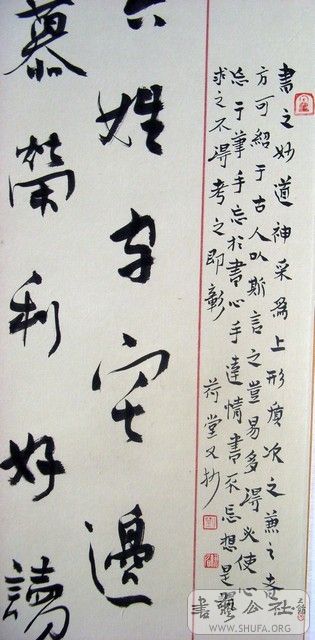 書之妙道神采為上形質次之兼之者
方可紹于古人以斯言之豈易多得必使心
忘于筆手忘於書心手達情書不忘想是謂
求之不得考之即彰 荷堂又抄
姓字宅邊
慕榮利好讀
書藝公社
WWW.SHUFA.ORG